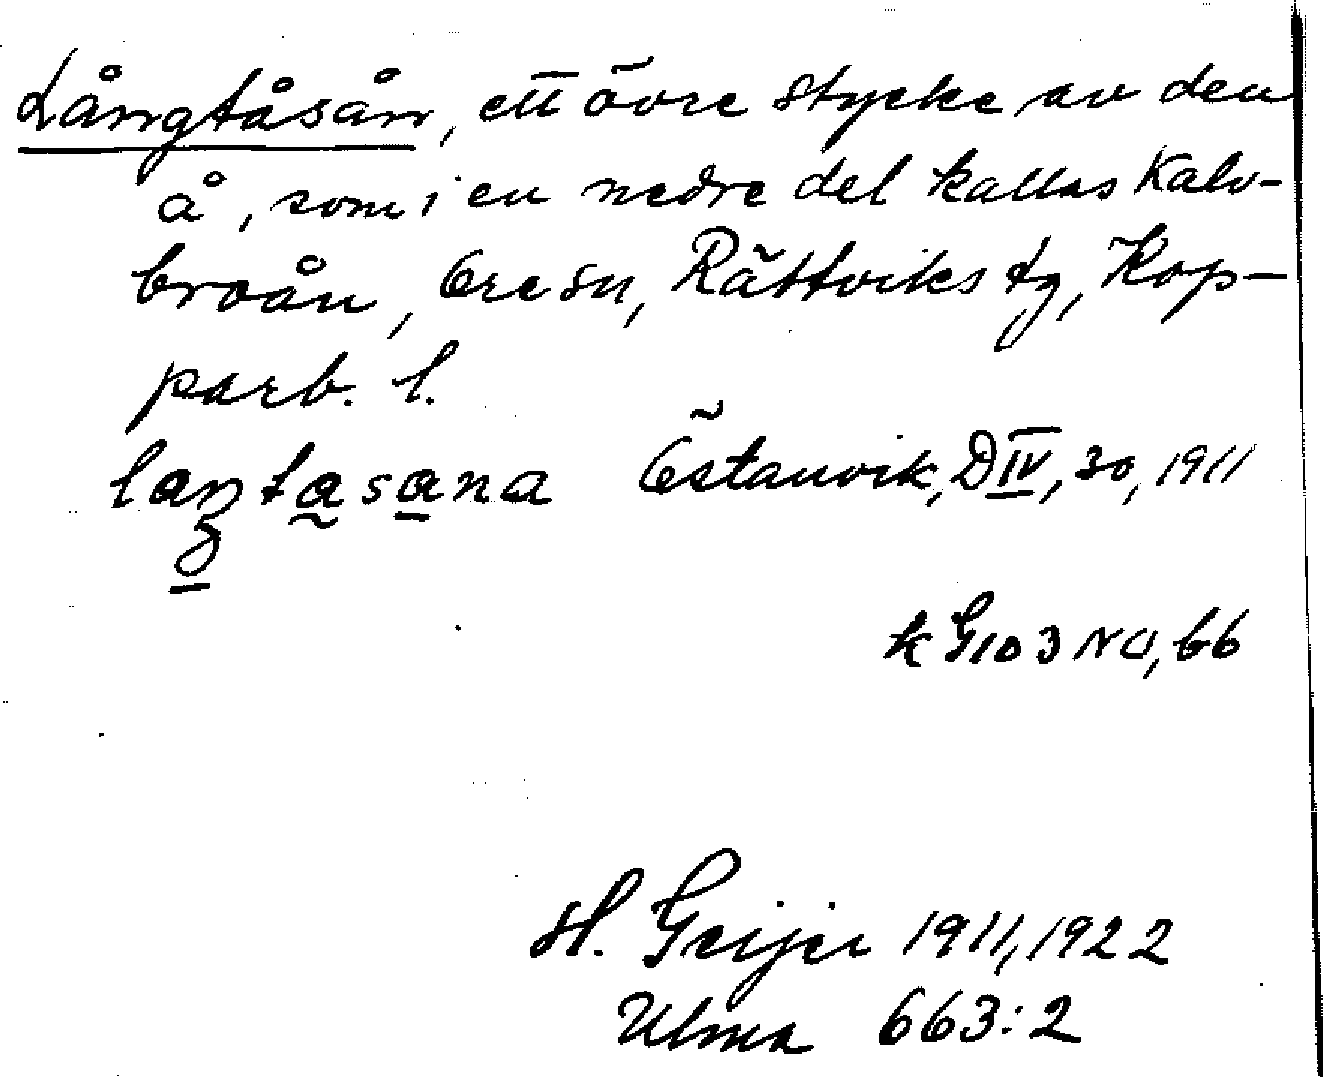 Långtåsån, ett övre stycke av den
å, som i en nedre del kallas Kalv-
broån, Ore sn, Rättviks tg, Kop-
parb. l.
Östanvik, D IV, 30, 1911
k G 103 NO, 66
H. Geijer 1911, 1922
Ulma 663:2